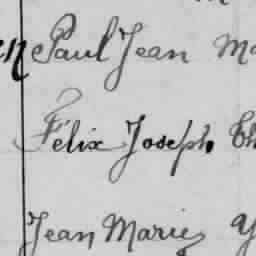 Paul Jean
Félix Joseph
Jean Marie